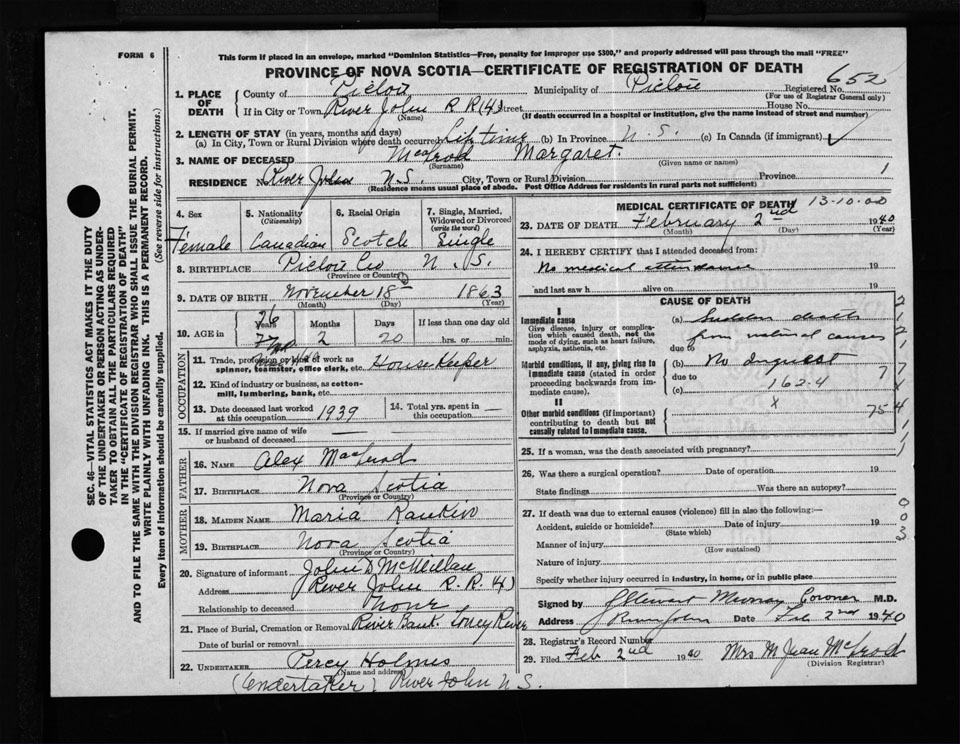 FORM 6
This form if placed in an envelope, marked "Dominion Statistics—Free, penalty for improper use $300," and properly addressed will pass through the mail "FREE"
PROVINCE OF NOVA SCOTIA—CERTIFICATE OF REGISTRATION OF DEATH
652
1. PLACE OF DEATH
County of Pictou Municipality of Pictou Registered No.
(For use of Registrar General only)
If in City or Town River John R R (4) Street House No.
(Name) (If death occurred in a hospital or institution, give the name instead of street and number)
2. LENGTH OF STAY (in years, months and days)
(a) In City, Town or Rural Division where death occurred Lifetime (b) In Province N. S. (c) In Canada (if immigrant)
3. NAME OF DECEASED MacLeod Margaret.
(Surname) (Given name or names)
RESIDENCE No. River John N.S. City, Town or Rural Division Province 1
(Residence means usual place of abode. Post Office Address for residents in rural parts not sufficient)
4. Sex
Female
5. Nationality
(Citizenship)
Canadian
6. Racial Origin
Scotch
7. Single, Married, Widowed or Divorced
(write the word)
Single
8. BIRTHPLACE Pictou Co N. S.
(Province or Country)
9. DATE OF BIRTH November 18 1863
(Month) (Day) (Year)
10. AGE in
76
Years Months Days If less than one day old
2 20 hrs. or min.
OCCUPATION
11. Trade, profession or kind of work as spinner, teamster, office clerk, etc. HouseKeeper
12. Kind of industry or business, as cotton-mill, lumbering, bank, etc.
13. Date deceased last worked at this occupation 1939
14. Total yrs. spent in this occupation —
15. If married give name of wife or husband of deceased — —
FATHER
16. NAME Alex MacLeod
17. BIRTHPLACE Nova Scotia
(Province or Country)
MOTHER
18. MAIDEN NAME Maria Rankin
19. BIRTHPLACE Nova Scotia
(Province or Country)
20. Signature of informant John D McMillan
Address River John R. R. (4)
Relationship to deceased None
21. Place of Burial, Cremation or Removal River Bank.
Date of burial or removal
22. UNDERTAKER Percy Holmes
(Name and address)
(Undertaker) River John N S.
MEDICAL CERTIFICATE OF DEATH 13-10-00
23. DATE OF DEATH February 2nd 1940
(Month) (Day) (Year)
24. I HEREBY CERTIFY that I attended deceased from:
No medical attendance 19
and last saw h alive on 19
CAUSE OF DEATH
I
Immediate cause
Give disease, injury or complication which caused death, not the mode of dying, such as heart failure, asphyxia, asthenia, etc.
(a) Sudden death
from natural causes
due to
Morbid conditions, if any, giving rise to immediate cause (stated in order proceeding backwards from immediate cause).
(b) No Inquest
due to
162-4
(c)
x
II
Other morbid conditions (if important) contributing to death but not causally related to immediate cause.
25. If a woman, was the death associated with pregnancy?
26. Was there a surgical operation? Date of operation 19
State findings Was there an autopsy?
27. If death was due to external causes (violence) fill in also the following:—
Accident, suicide or homicide? Date of injury 19
(State which)
Manner of injury
(How sustained)
Nature of injury
Specify whether injury occurred in industry, in home, or in public place
Signed by Murray Coroner M.D.
Address River John Date Feb 2nd 1940
28. Registrar's Record Number
29. Filed Feb 2nd 1940 Mrs M Jean McLeod
(Division Registrar)
SEC. 46—VITAL STATISTICS ACT MAKES IT THE DUTY OF THE UNDERTAKER OR PERSON ACTING AS UNDERTAKER TO OBTAIN ALL THE PARTICULARS REQUIRED IN THE "CERTIFICATE OF REGISTRATION OF DEATH" AND TO FILE THE SAME WITH THE DIVISION REGISTRAR WHO SHALL ISSUE THE BURIAL PERMIT.
WRITE PLAINLY WITH UNFADING INK. THIS IS A PERMANENT RECORD.
Every item of information should be carefully supplied. (See reverse side for instructions.)